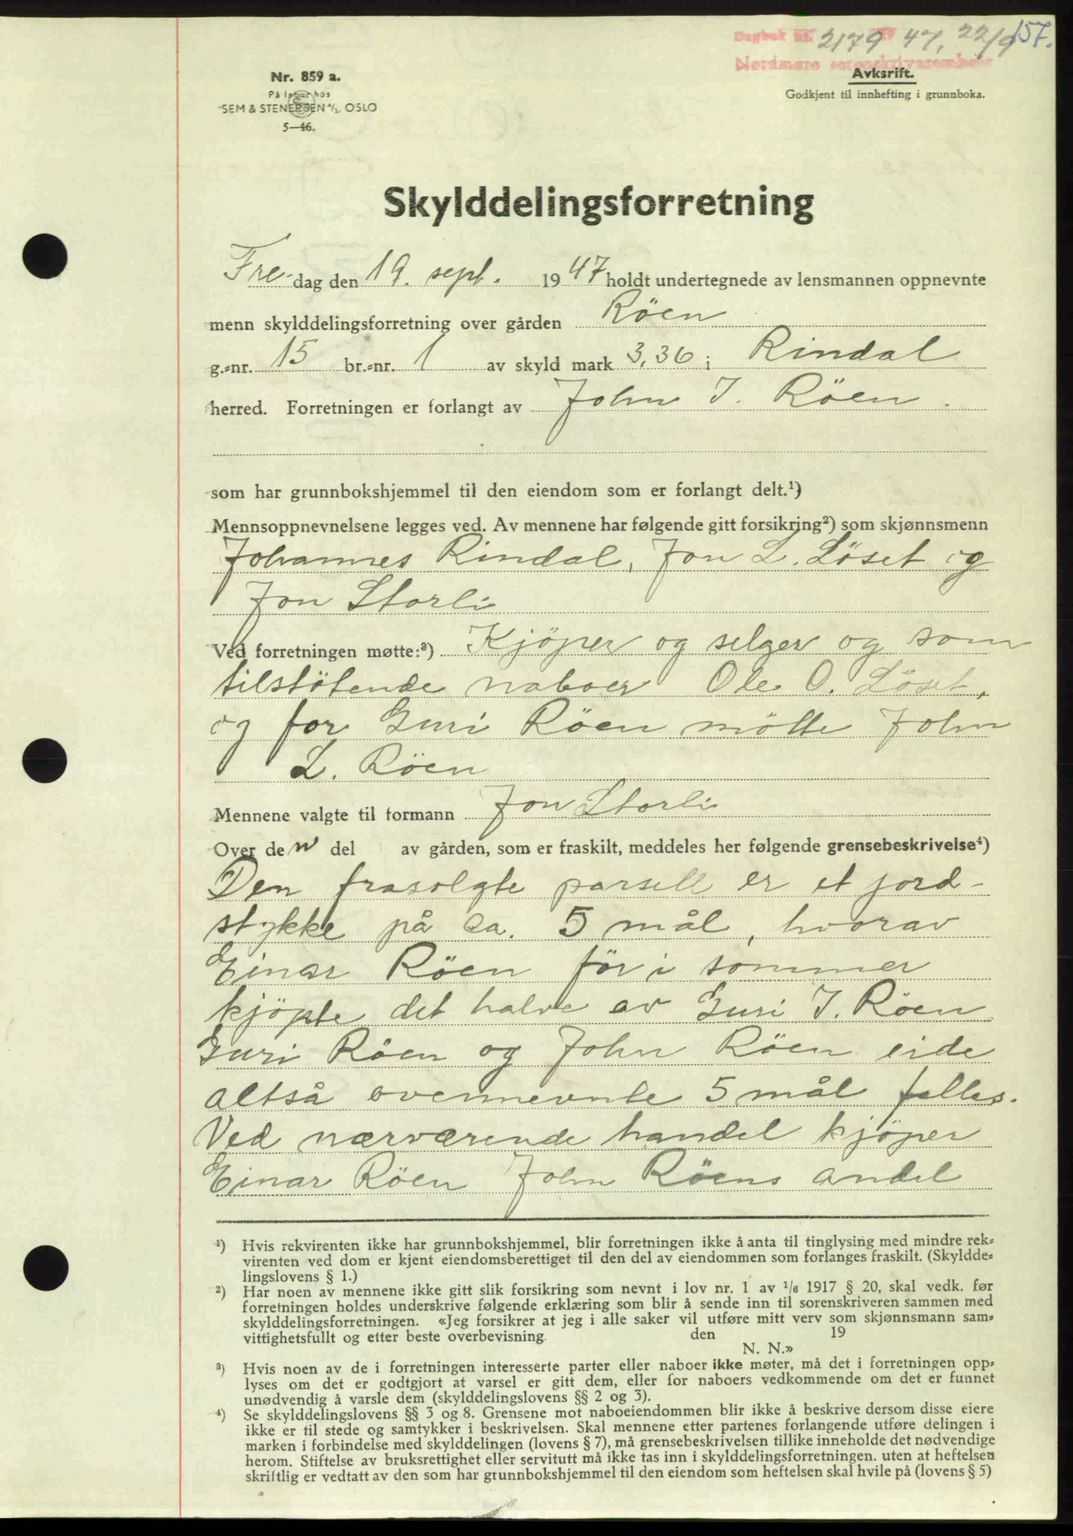 157.
Dagbok nr. 2179 19 47, 22/9
Nordmøre sorenskriverembete
Nr. 859 a.
På lager hos
SEM & STENERSEN A/S. OSLO
5—46.
Avksrift.
Godkjent til innhefting i grunnboka.
Skylddelingsforretning
Fre-dag den 19. sept. 1947 holdt undertegnede av lensmannen oppnevnte
menn skylddelingsforretning over gården Röen
g.-nr. 15 br.-nr. 1 av skyld mark 3,36 i Rindal
herred. Forretningen er forlangt av John I. Röen.
som har grunnbokshjemmel til den eiendom som er forlangt delt.¹)
Mennsoppnevnelsene legges ved. Av mennene har følgende gitt forsikring²) som skjønnsmenn
Johannes Rindal, Jon L. Löset og
Jon Storli
Ved forretningen møtte:³) Kjöper og selger og som
tilstötende naboer Ole O. Löset,
og for Guri Röen mötte John
L. Röen
Mennene valgte til formann Jon Storli
Over den del av gården, som er fraskilt, meddeles her følgende grensebeskrivelse⁴)
Den frasolgte parsell er et jord-
stykke på ca. 5 mål, hvorav
Einar Röen för i sommer
kjöpte det halve av Guri I. Röen
Guri Röen og John Röen eide
altså ovennevnte 5 mål felles.
Ved nærværende handel kjöper
Einar Röen John Röens andel
¹) Hvis rekvirenten ikke har grunnbokshjemmel, blir forretningen ikke å anta til tinglysing med mindre rek-
virenten ved dom er kjent eiendomsberettiget til den del av eiendommen som forlanges fraskilt. (Skyldde-
lingslovens § 1.)
²) Har noen av mennene ikke gitt slik forsikring som nevnt i lov nr. 1 av 1/6 1917 § 20, skal vedk. før
forretningen holdes underskrive følgende erklæring som blir å sende inn til sorenskriveren sammen med
skylddelingsforretningen. «Jeg forsikrer at jeg i alle saker vil utføre mitt verv som skjønnsmann sam-
vittighetsfullt og etter beste overbevisning. den 19
N. N.»
³) Hvis noen av de i forretningen interesserte parter eller naboer ikke møter, må det i forretningen opp-
lyses om det er godtgjort at varsel er gitt dem, eller for naboers vedkommende om det er funnet
unødvendig å varsle dem (skylddelingslovens §§ 2 og 3).
⁴) Se skylddelingslovens §§ 3 og 8. Grensene mot naboeiendommen blir ikke å beskrive dersom disse eiere
ikke er til stede og samtykker i beskrivelsen. Skal mennene etter partenes forlangende utføre delingen i
marken i forbindelse med skylddelingen (lovens § 7), må grensebeskrivelsen tillike inneholde det nødvendige
herom. Stiftelse av bruksrettighet eller servitutt må ikke tas inn i skylddelingsforretningen. uten at heftelsen
skriftlig er vedtatt av den som har grunnbokshjemmel til den eiendom som heftelsen skal hvile på (lovens § 5)